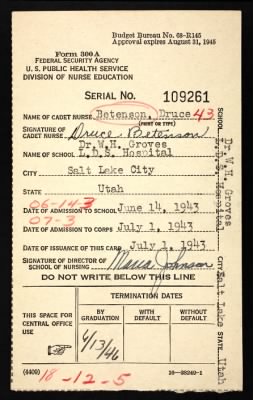 Budget Bureau No. 68-R145
Approval expires August 31, 1945
Form 300A
FEDERAL SECURITY AGENCY
U. S. PUBLIC HEALTH SERVICE
DIVISION OF NURSE EDUCATION
SERIAL NO. 109261
NAME OF CADET NURSE Betenson, Druce 43
(PRINT OR TYPE)
SIGNATURE OF CADET NURSE Druce Betenson
Dr.W.H. Groves
NAME OF SCHOOL L.D.S. Hospital
CITY Salt Lake City
STATE Utah
06-14-3
DATE OF ADMISSION TO SCHOOL June 14, 1943
07-3
DATE OF ADMISSION TO CORPS July 1, 1943
DATE OF ISSUANCE OF THIS CARD July 1, 1943
SIGNATURE OF DIRECTOR OF SCHOOL OF NURSING Maria Johnson
DO NOT WRITE BELOW THIS LINE
TERMINATION DATES
THIS SPACE FOR CENTRAL OFFICE USE
BY GRADUATION
WITH DEFAULT
WITHOUT DEFAULT
6/13/46
(4409)
18-12-5
16—38249-1
SCHOOL Dr.W.H. Groves L.D.S. Hospital CITY Salt Lake STATE Utah